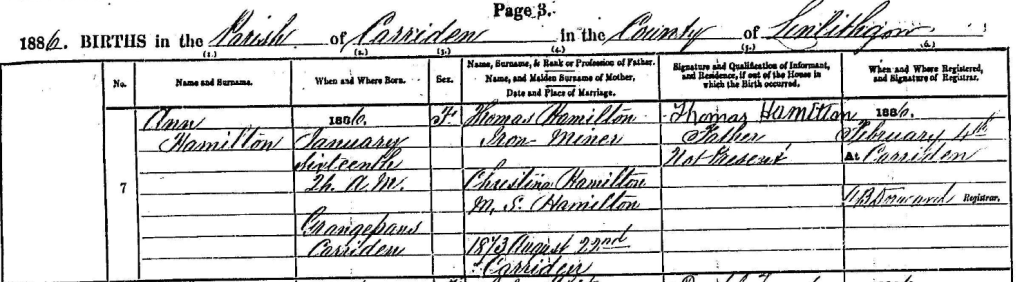 Page 3.
1886. BIRTHS in the Parish of Carriden in the County of Linlithgow
(1.) (2.) (3.) (4.) (5.) (6.)
No.
Name and Surname.
When and Where Born.
Sex.
Name, Surname, & Rank or Profession of Father.
Name, and Maiden Surname of Mother,
Date and Place of Marriage.
Signature and Qualification of Informant,
and Residence, if out of the House in
which the Birth occurred.
When and Where Registered,
and Signature of Registrar.
7
Ann
Hamilton
1886.
January
Sixteenth
2h. A.M.
Grangepans
Carriden
F.
Thomas Hamilton
Iron Miner
Christina Hamilton
M. S. Hamilton
1873 August 22nd
Carriden
Thomas Hamilton
Father
Not Present
1886.
February 4th
At Carriden
Registrar.